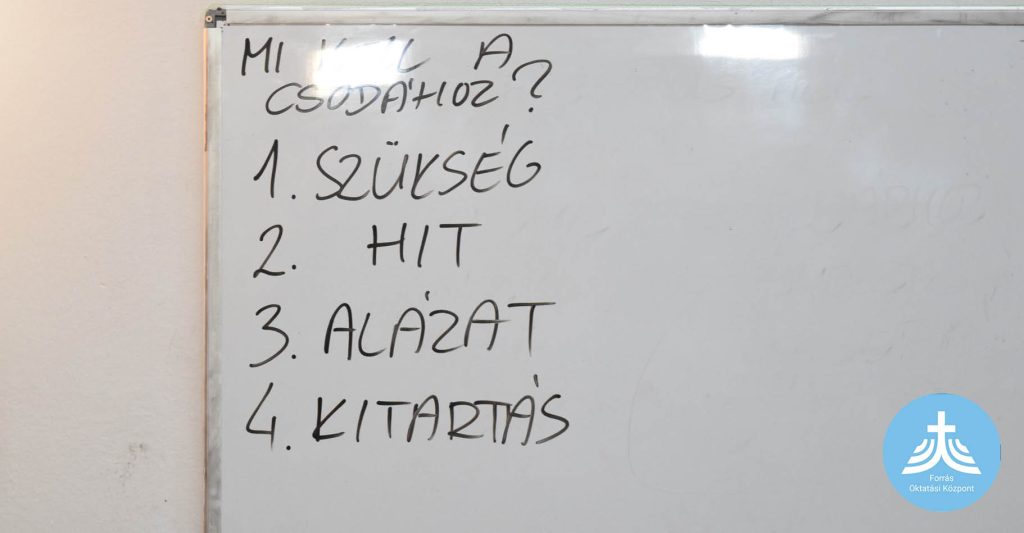 MI KELL A
CSODÁHOZ?
1. SZÜKSÉG
2. HIT
3. ALÁZAT
4. KITARTÁS
Forrás
Oktatási Központ